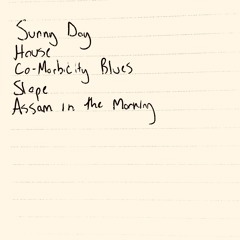 Sunny Day
House
Co-Morbicity Blues
Slope
Assam in the Morning